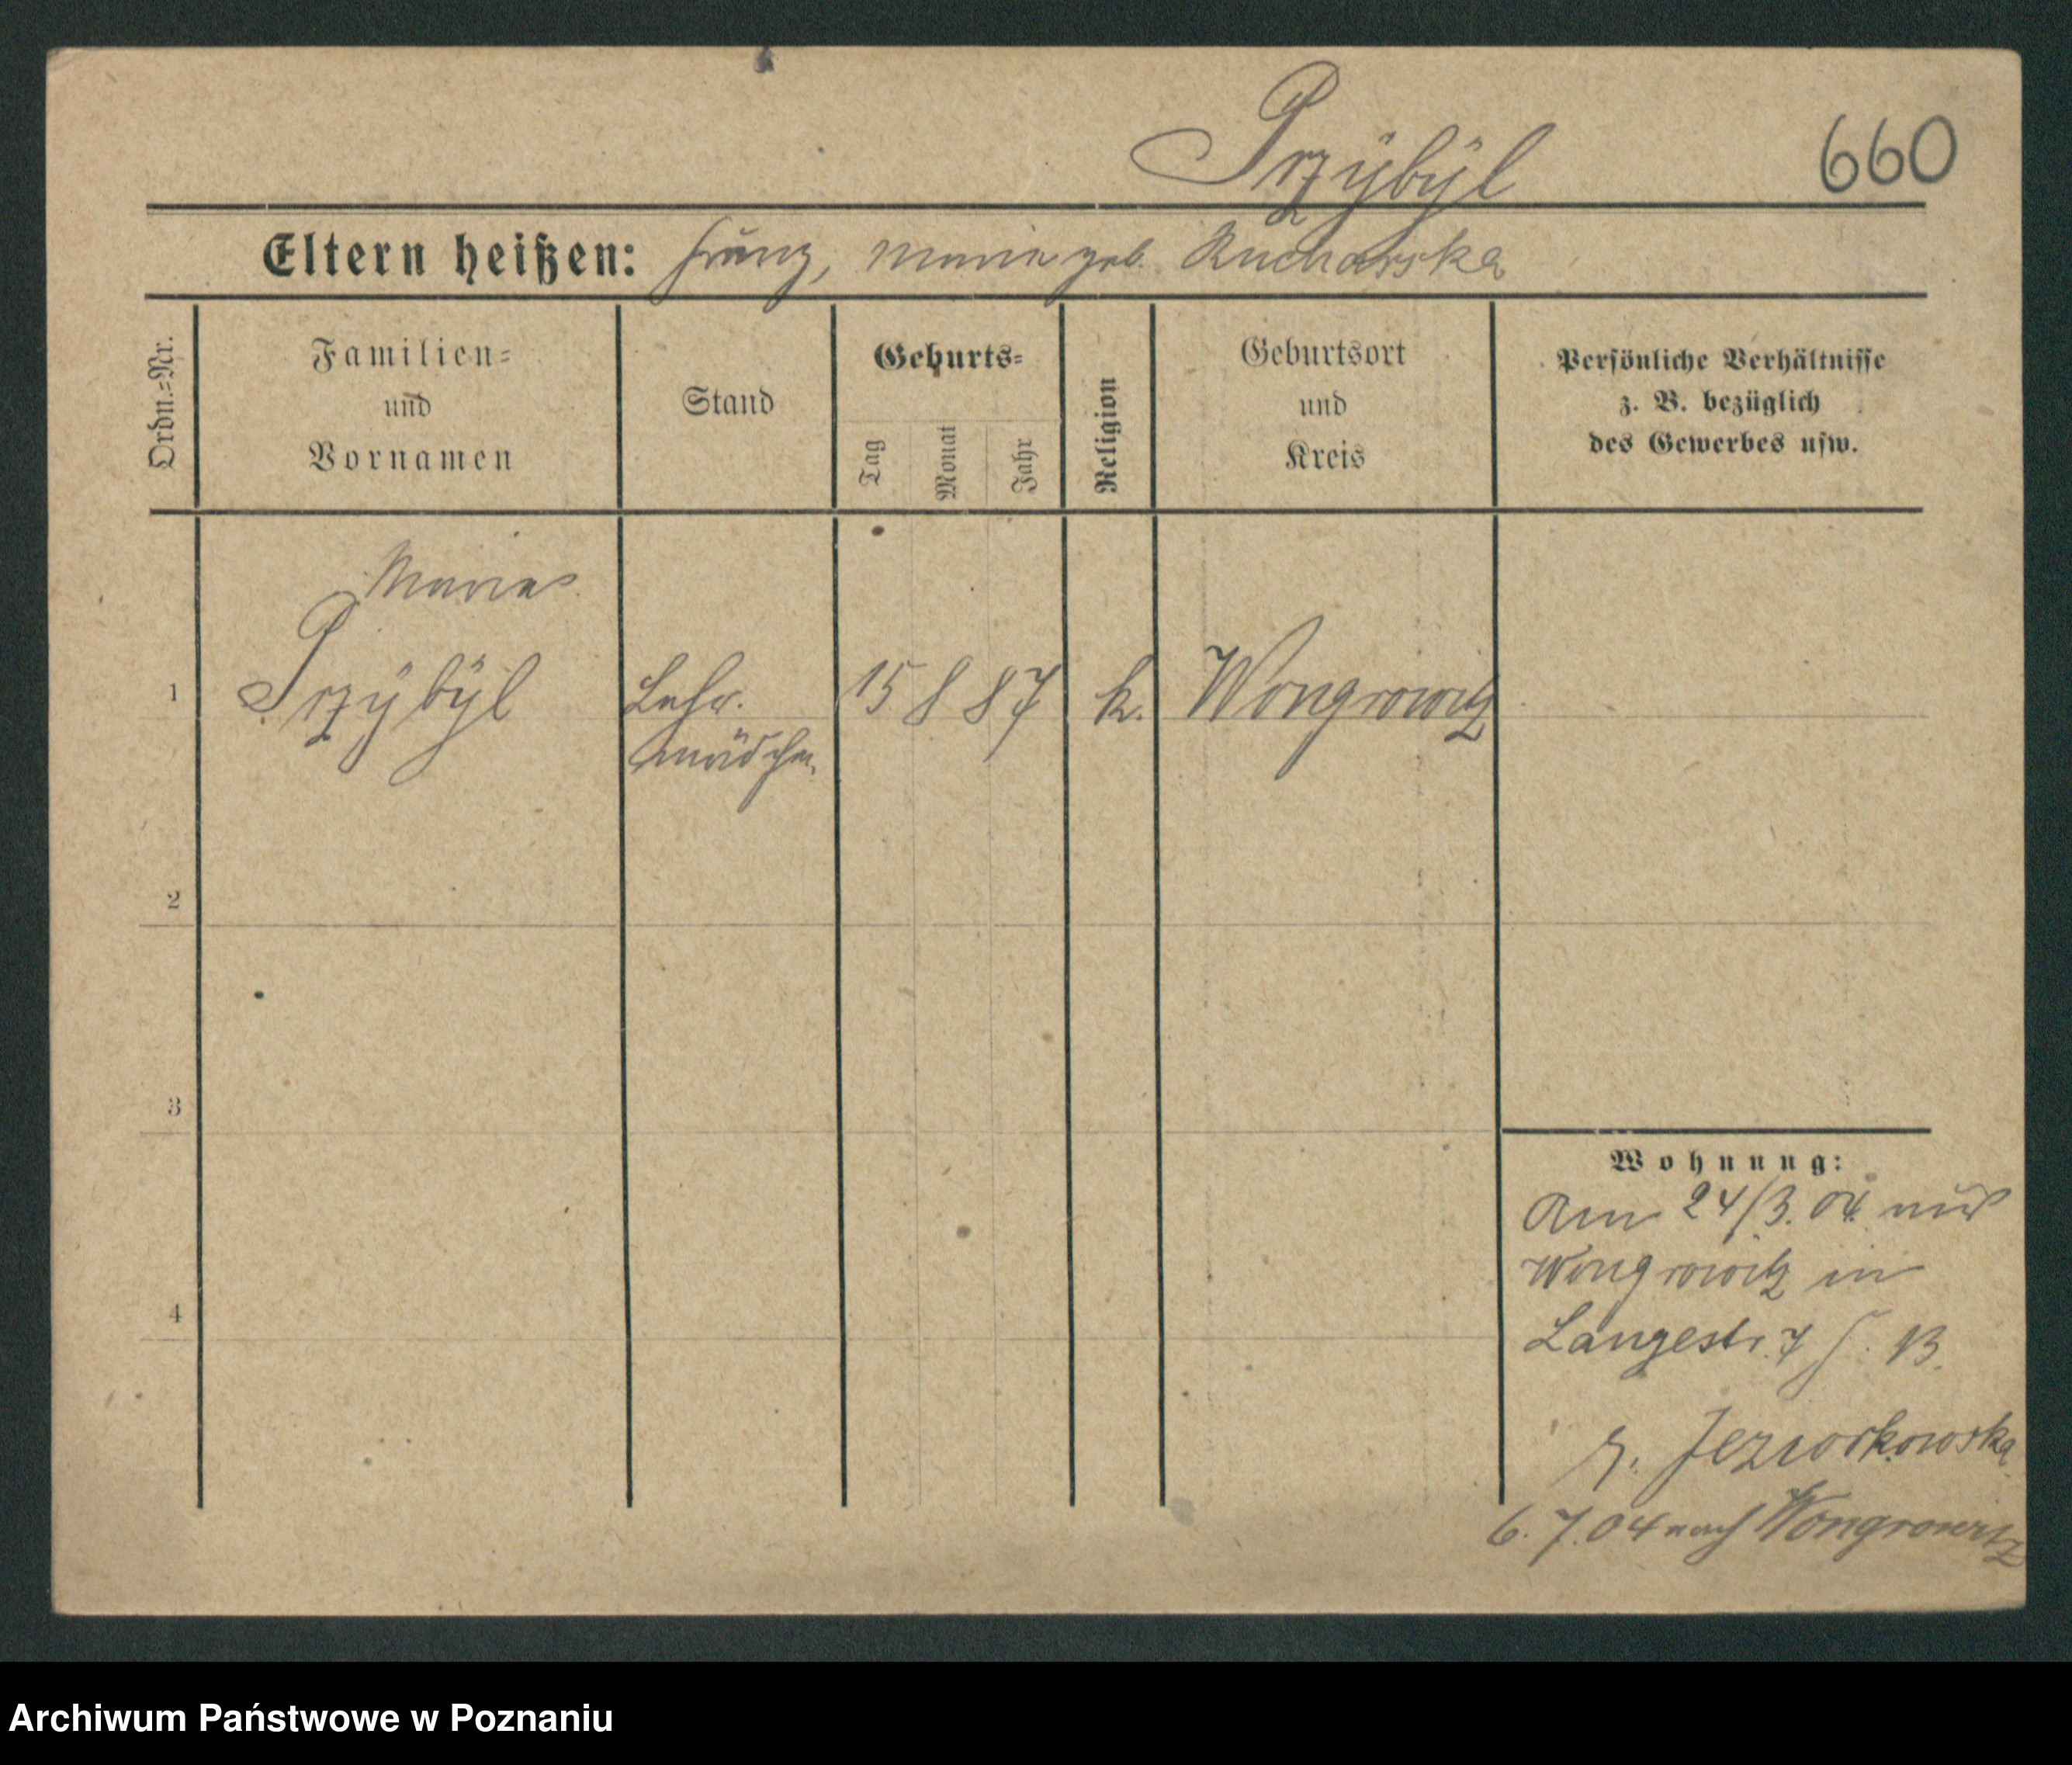 Przÿbÿl
660
Eltern heißen: Franz, Marie geb. Kucharska
Ordn.=Nr.
Familien=
und
Vornamen
Stand
Geburts=
Tag
Monat
Jahr
Religion
Geburtsort
und
Kreis
Persönliche Verhältnisse
z. B. bezüglich
des Gewerbes usw.
Marie
1 Przÿbÿl Lehr. 15 8 87 k. Wongrowitz
mädchen
2
3
4
Wohnung:
Am 24/3. 04. aus
Wongrowitz in
Langestr. 7 B.
Jeziorkowska
6. 7. 04 nach Wongrowitz
Archiwum Państwowe w Poznaniu